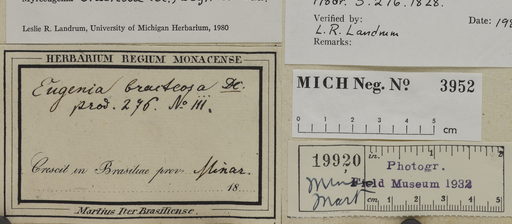 Leslie R. Landrum, University of Michigan Herbarium, 1980
3. 276. 1828.
Verified by:
Date: 198
L. R. Landrum
Remarks:
HERBARIUM REGIUM MONACENSE
Eugenia bracteosa DC.
prod. 276. No III.
Crescit in Brasiliae prov. Minar.
18
Martius Iter Brasiliense.
MICH Neg. No 3952
0 1 2 3 4 5
cm
19920
in. 1 2
Photogr.
Field Museum 1932
Mart
cm 1 2 3 4 5